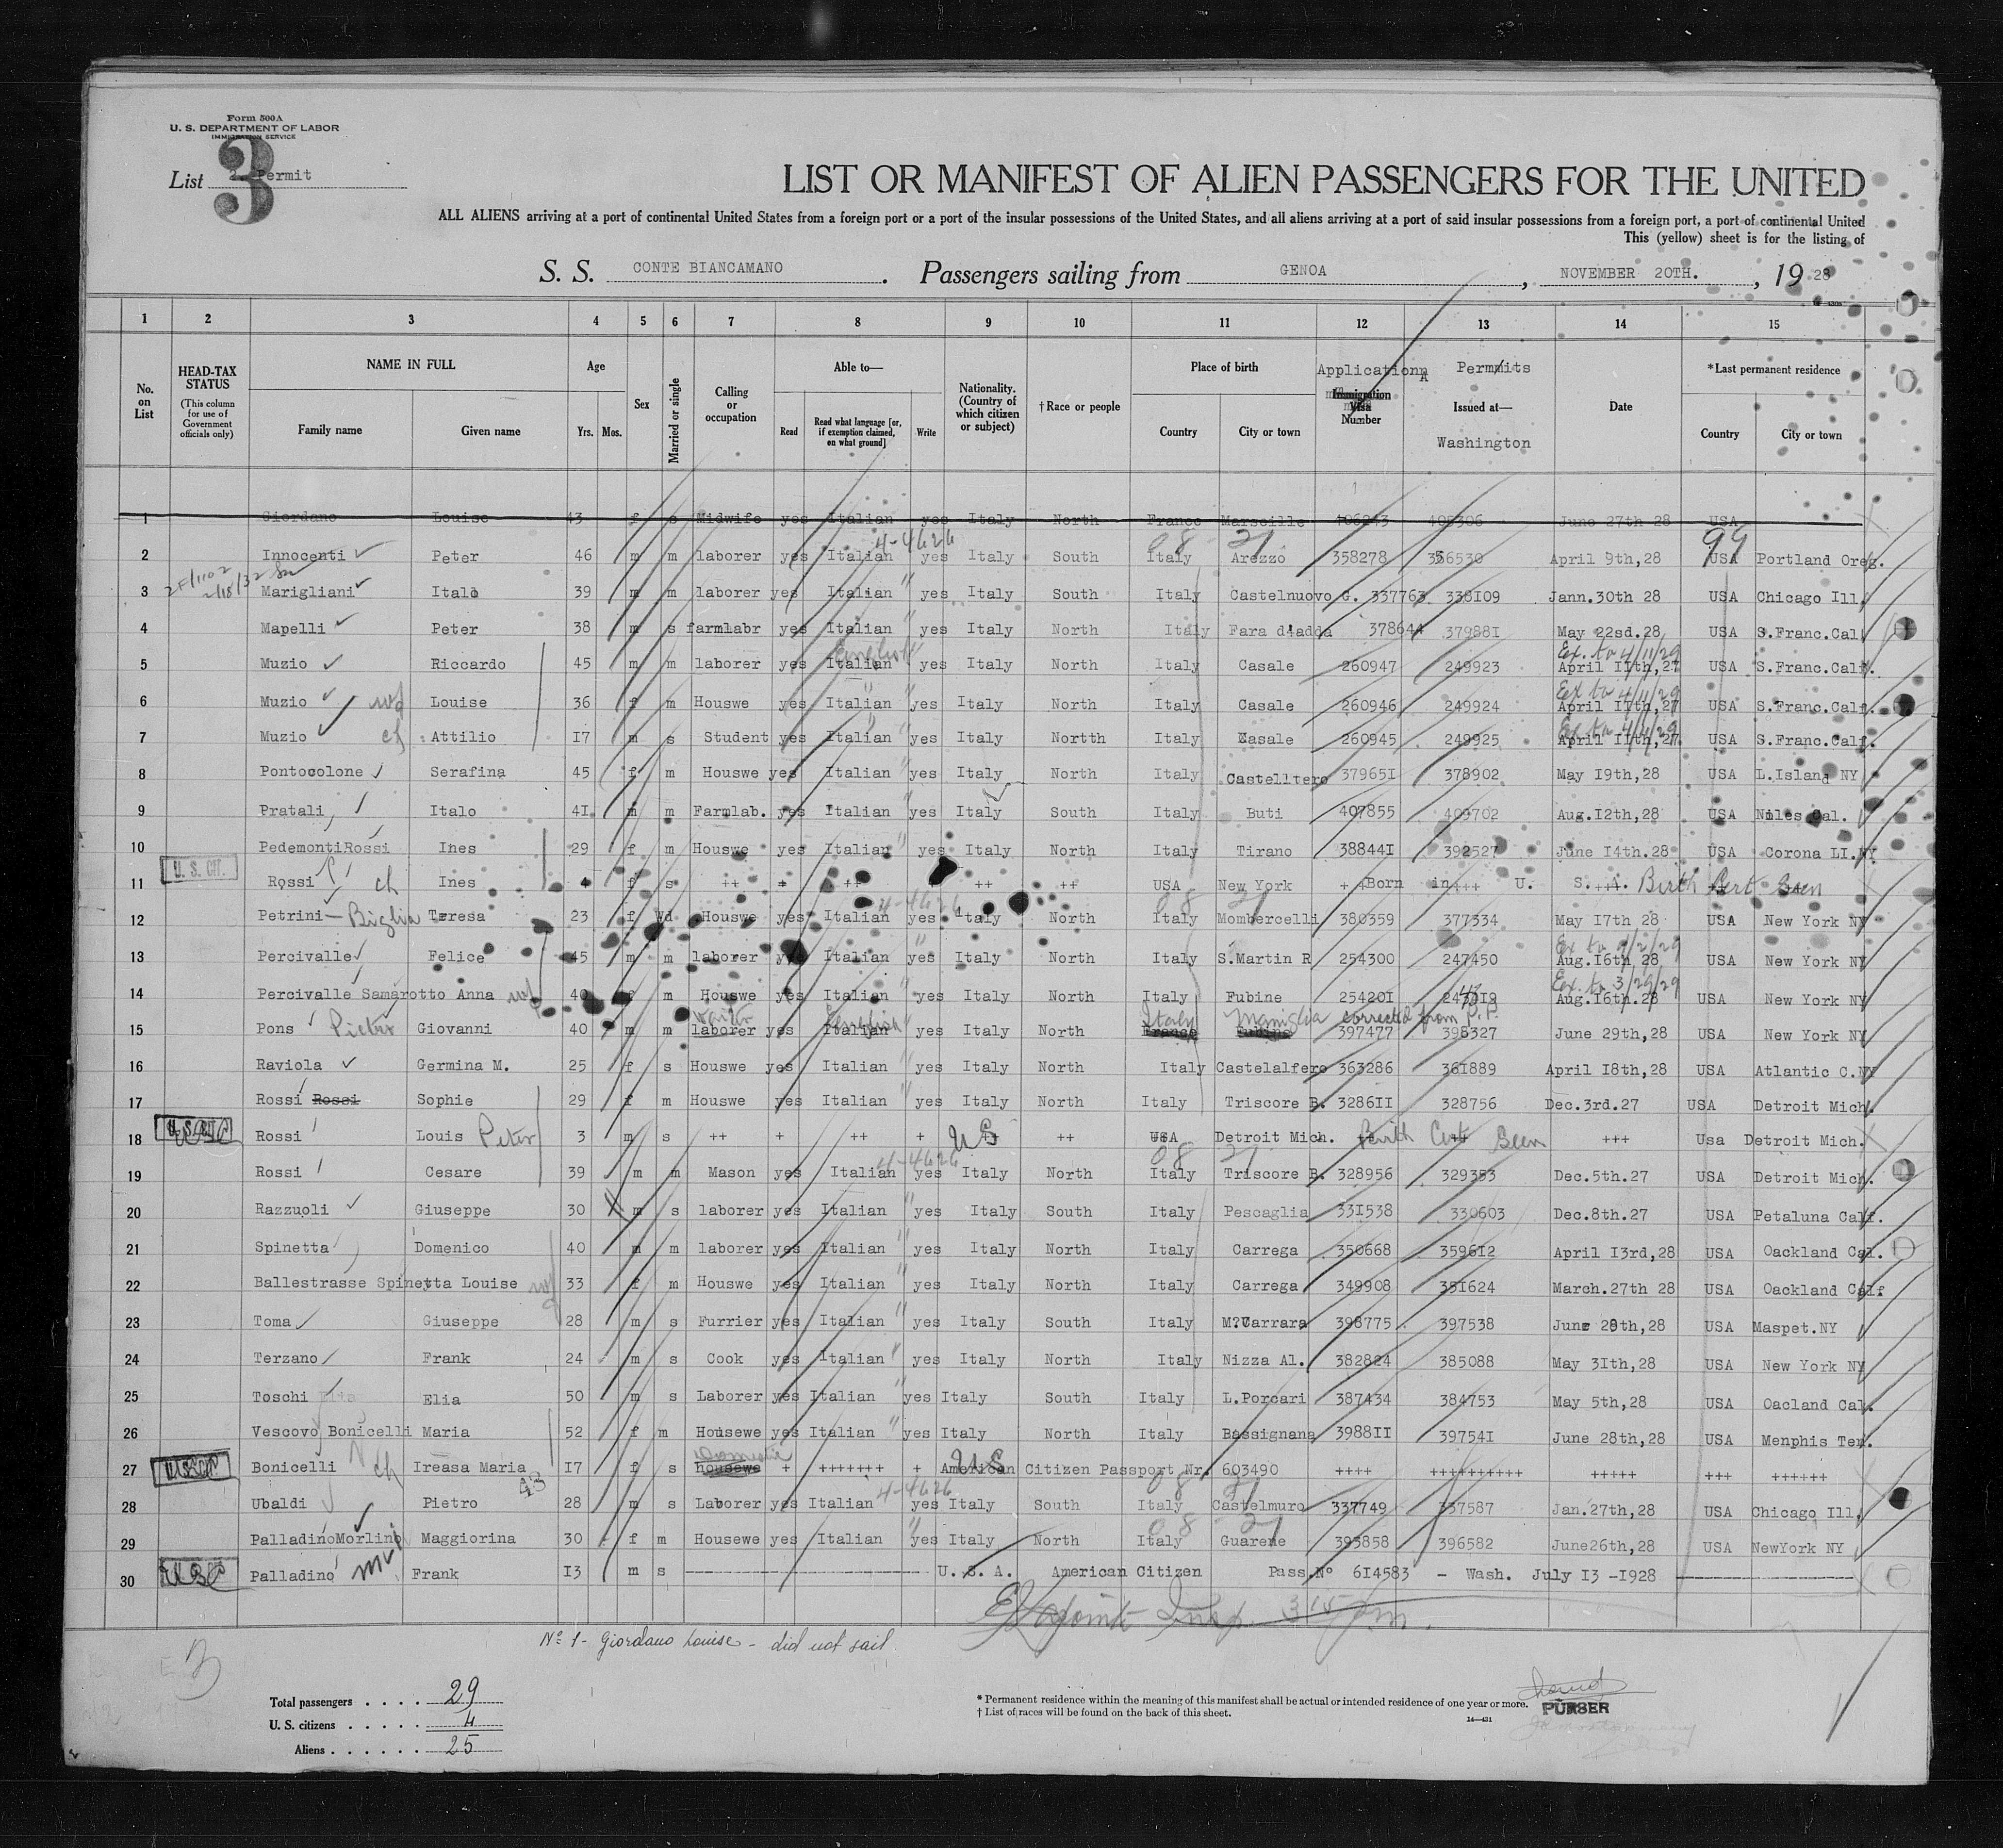 Form 500A
U. S. DEPARTMENT OF LABOR
IMMIGRATION SERVICE
3
List 2. Permit
LIST OR MANIFEST OF ALIEN PASSENGERS FOR THE UNITED
ALL ALIENS arriving at a port of continental United States from a foreign port or a port of the insular possessions of the United States, and all aliens arriving at a port of said insular possessions from a foreign port, a port of continental United
This (yellow) sheet is for the listing of
S. S. CONTE BIANCAMANO. Passengers sailing from GENOA, NOVEMBER 20TH., 19 28
1 2 3 4 5 6 7 8 9 10 11 12 13 14 15
No. on List
HEAD-TAX STATUS
(This column for use of Government officials only)
NAME IN FULL
Family name Given name
Age
Yrs. Mos.
Sex
Married or single
Calling or occupation
Able to—
Read Read what language [or, if exemption claimed, on what ground] Write
Nationality. (Country of which citizen or subject)
† Race or people
Place of birth
Country City or town
Application
Immigration Visa Number
Permits
Issued at—
Washington
Date
* Last permanent residence
Country City or town
1 Giordano Louise 43 f s Midwife yes Italian yes Italy North France Marseille 406306 June 27th 28 USA
4-4626 08 21 99
2 Innocenti Peter 46 m m laborer yes Italian yes Italy South Italy Arezzo 358278 356530 April 9th,28 USA Portland Oreg.
3 Marigliani Italo 39 m m laborer yes Italian " yes Italy South Italy Castelnuovo G. 337763 338109 Jann.30th 28 USA Chicago Ill.
4 Mapelli Peter 38 m s farmlabr yes Italian " yes Italy North Italy Fara d'adda 378644 379881 May 22sd.28 USA S.Franc.Cal
English Ex. to 4/11/29
5 Muzio Riccardo 45 m m laborer yes Italian yes Italy North Italy Casale 260947 249923 April 11th,27 USA S.Franc.Calf.
Ex to 4/11/29
6 Muzio wf Louise 36 f m Houswe yes Italian " yes Italy North Italy Casale 260946 249924 April 11th,27 USA S.Franc.Calf.
Ex to 4/11/29
7 Muzio ch Attilio 17 m s Student yes Italian " yes Italy Nortth Italy Casale 260945 249925 April 11th,27 USA S.Franc.Calf.
8 Pontocolone Serafina 45 f m Houswe yes Italian " yes Italy North Italy Castelltero 379651 378902 May 19th,28 USA L.Island NY
9 Pratali Italo 41 m m Farmlab. yes Italian " yes Italy South Italy Buti 407855 409702 Aug.12th,28 USA Niles Cal.
10 PedemontiRossi Ines 29 f m Houswe yes Italian " yes Italy North Italy Tirano 388441 392527 June 14th.28 USA Corona LI.NY
U. S. CIT.
11 Rossi ch Ines f s ++ + ++ + ++ ++ USA New York + +Born in+++ U. S. A. Birth Cert Seen
4-4626 08 21
12 Petrini - Biglia Teresa 23 f Wd Houswe yes Italian yes Italy North Italy Mombercelli 380359 377334 May 17th 28 USA New York NY
Ex to 9/2/29
13 Percivalle Felice 45 m m laborer yes Italian " yes Italy North Italy S.Martin R 254300 247450 Aug.16th,28 USA New York NY
Ex. to 3/29/29
14 Percivalle Samarotto Anna wf 40 f m Houswe yes Italian " yes Italy North Italy Fubine 254201 Aug.16th.28 USA New York NY
waiter English Italy Maniglia corrected from P.P.
15 Pons Pietro Giovanni 40 m m laborer yes Italian yes Italy North France Fubine 397477 398327 June 29th,28 USA New York NY
16 Raviola Germina M. 25 f s Houswe yes Italian " yes Italy North Italy Castelalfero 363286 361889 April 18th,28 USA Atlantic C.NY
17 Rossi Rossi Sophie 29 f m Houswe yes Italian " yes Italy North Italy Triscore B. 328611 328756 Dec.3rd.27 USA Detroit Mich.
18 Rossi Louis Peter 3 m s ++ + ++ + US ++ USA Detroit Mich. Birth Cert Seen +++ Usa Detroit Mich.
4-4626 08 21
19 Rossi Cesare 39 m m Mason yes Italian yes Italy North Italy Triscore B. 328956 329353 Dec.5th.27 USA Detroit Mich.
20 Razzuoli Giuseppe 30 m s laborer yes Italian " yes Italy South Italy Pescaglia 331538 330603 Dec.8th.27 USA Petaluna Calf.
21 Spinetta Domenico 40 m m laborer yes Italian " yes Italy North Italy Carrega 350668 359612 April 13rd,28 USA Oackland Cal.
22 Ballestrasse Spinetta Louise wf 33 f m Houswe yes Italian " yes Italy North Italy Carrega 349908 351624 March.27th 28 USA Oackland Calf
23 Toma Giuseppe 28 m s Furrier yes Italian " yes Italy South Italy M.Carrara 398775 397538 June 28th,28 USA Maspet.NY
24 Terzano Frank 24 m s Cook yes Italian " yes Italy North Italy Nizza Al. 382824 385088 May 31th,28 USA New York NY
25 Toschi Elia 50 m s Laborer yes Italian " yes Italy South Italy L.Porcari 387434 384753 May 5th,28 USA Oacland Cal.
26 Vescovo Bonicelli Maria 52 f m Housewe yes Italian " yes Italy North Italy Bassignana 398811 397541 June 28th,28 USA Menphis Ten.
Domestic
27 Bonicelli ch Ireasa Maria 17 f s housewe + +++++++ + American Citizen Passport Nr. 603490 ++++ ++++++++++ +++++ +++ ++++++
43 4-4626 08 21
28 Ubaldi Pietro 28 m s Laborer yes Italian yes Italy South Italy Castelmuro 337749 337587 Jan.27th,28 USA Chicago Ill.
08 21
29 PalladinoMorlino Maggiorina 30 f m Housewe yes Italian " yes Italy North Italy Guarene 393858 396582 June26th,28 USA NewYork NY
30 Palladino Frank 13 m s U.S.A. American Citizen Pass.Nº 614583 - Wash. July 13 -1928
Nº 1 - Giordano Louise - did not sail
Total passengers . . . . 29
U. S. citizens . . . . . 4
Aliens . . . . . . 25
* Permanent residence within the meaning of this manifest shall be actual or intended residence of one year or more.
† List of races will be found on the back of this sheet.
14—431
PURSER